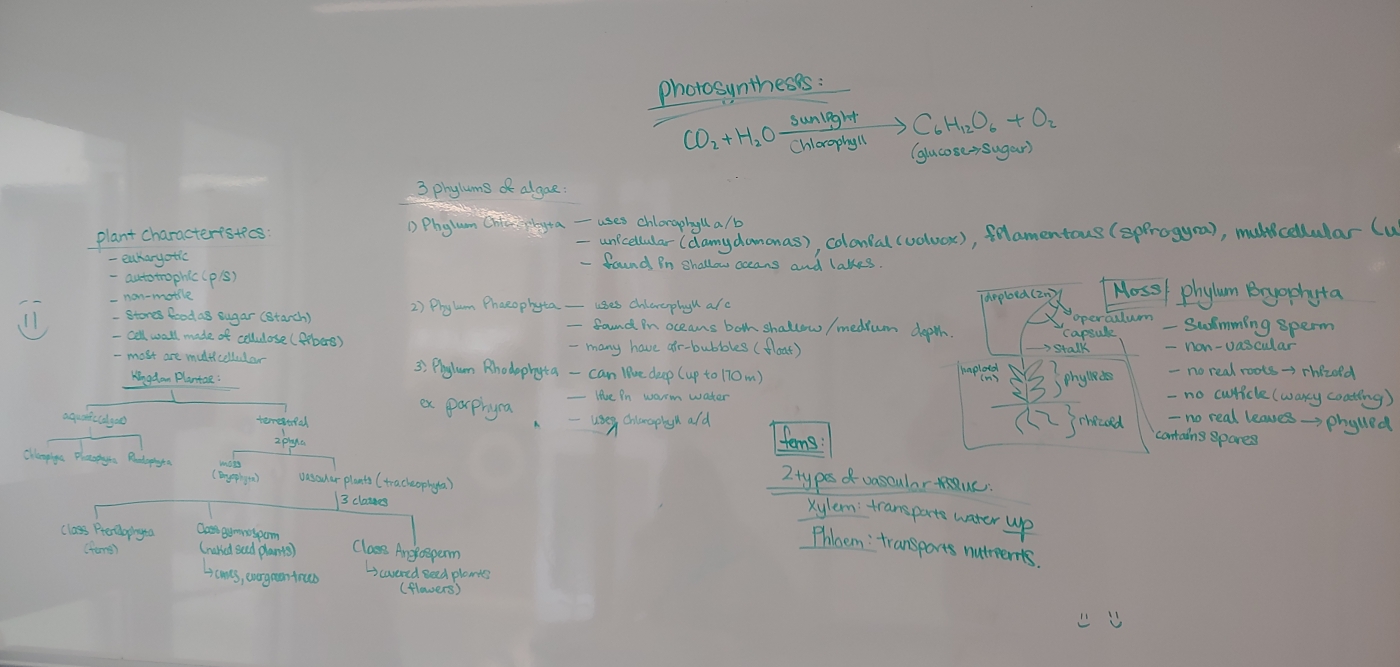 photosynthesis:
CO₂ + H₂O sunlight Chlorophyll → C₆H₁₂O₆ + O₂
(glucose → sugar)
3 phylums of algae:
1) Phylum Chlorophyta — uses chlorophyll a/b
— unicellular (clamydamonas), colonial (volvox), filamentous (spirogyra), multicellular (
— found in shallow oceans and lakes.
2) Phylum Phaeophyta — uses chlorophyll a/c
— found in oceans both shallow/medium depth.
— many have air-bubbles (float)
3) Phylum Rhodophyta — can live deep (up to 170m)
ex porphyra — live in warm water
— uses chlorophyll a/d
plant characteristics:
- eukaryotic
- autotrophic (p/s)
- non-motile
- stores food as sugar (starch)
- Cell wall made of cellulose (fibers)
- most are multicellular
Kingdom Plantae:
aquatic (algae) terrestrial
2 phyla
Chlorophyta Phaeophyta Rhodophyta
moss (Bryophyta) vascular plants (tracheophyta)
3 classes
Class Pteridophyta (ferns)
Class gymnosperm (naked seed plants)
↳ cones, evergreen trees
Class Angiosperm
↳ covered seed plants (flowers)
ferns:
2 types of vascular tissue:
Xylem: transports water up
Phloem: transports nutrients.
Moss: phylum Bryophyta
— Swimming sperm
— non-vascular
— no real roots → rhizoid
— no cuticle (waxy coating)
— no real leaves → phyllid
diploid (2n)
operculum
capsule
→ stalk
haploid (n)
phyllids
rhizoid
contains spores